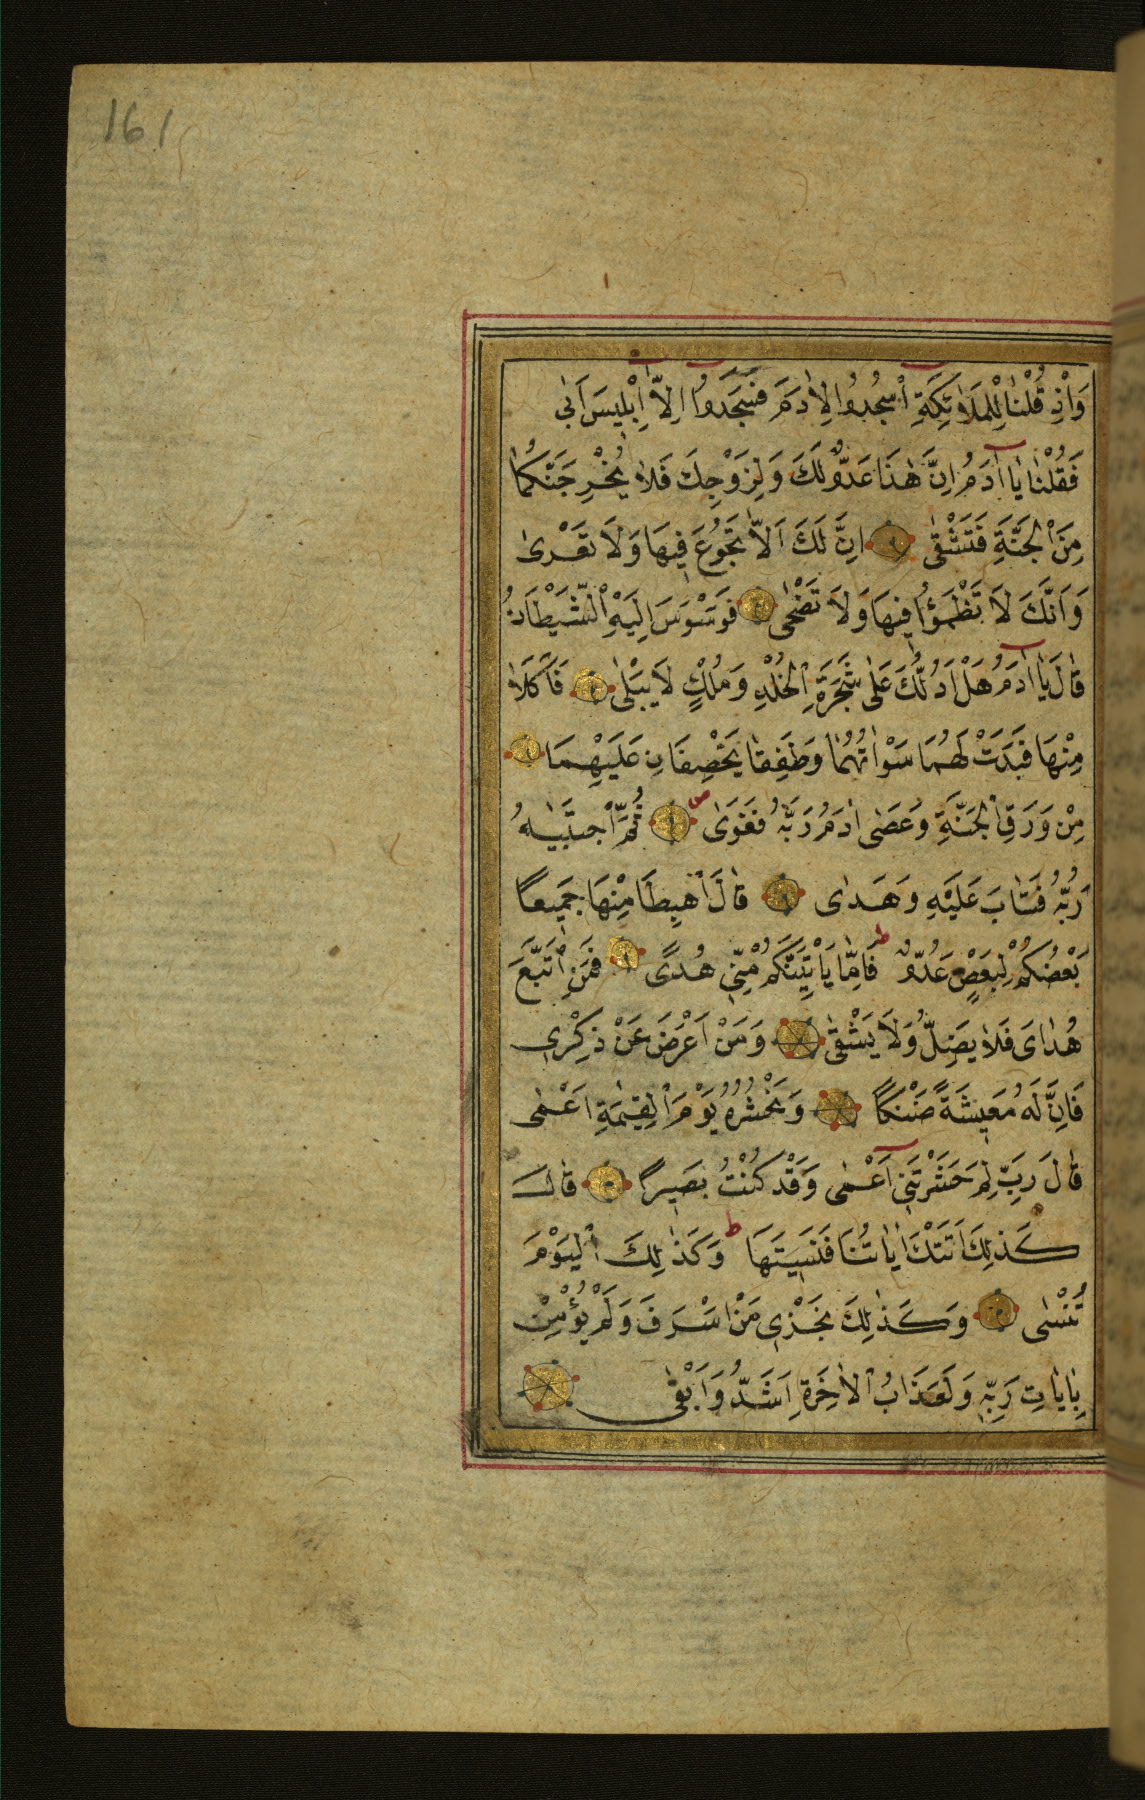 161
وَاِذْ قُلْنَا لِلْمَلٰٓائِكَةِ اسْجُدُوا لِاٰدَمَ فَسَجَدُٓوا اِلَّٓا اِبْلِيسَ اَبٰى
فَقُلْنَا يَٓا اٰدَمُ اِنَّ هٰذَا عَدُوٌّ لَكَ وَلِزَوْجِكَ فَلَا يُخْرِجَنَّكُمَا
مِنَ الْجَنَّةِ فَتَشْقٰى اِنَّ لَكَ اَلَّا تَجُوعَ فِيهَا وَلَا تَعْرٰى
وَاَنَّكَ لَا تَظْمَؤُا فِيهَا وَلَا تَضْحٰى فَوَسْوَسَ اِلَيْهِ الشَّيْطَانُ
قَالَ يَٓا اٰدَمُ هَلْ اَدُلُّكَ عَلٰى شَجَرَةِ الْخُلْدِ وَمُلْكٍ لَا يَبْلٰى فَاَكَلَا
مِنْهَا فَبَدَتْ لَهُمَا سَوْاٰتُهُمَا وَطَفِقَا يَخْصِفَانِ عَلَيْهِمَا
مِنْ وَرَقِ الْجَنَّةِ وَعَصٰى اٰدَمُ رَبَّهُ فَغَوٰى ص ثُمَّ اجْتَبٰيهُ
رَبُّهُ فَتَابَ عَلَيْهِ وَهَدٰى قَالَ اهْبِطَا مِنْهَا جَمِيعًا
بَعْضُكُمْ لِبَعْضٍ عَدُوٌّ ط فَاِمَّا يَأْتِيَنَّكُمْ مِنِّي هُدًى فَمَنِ اتَّبَعَ
هُدَايَ فَلَا يَضِلُّ وَلَا يَشْقٰى وَمَنْ اَعْرَضَ عَنْ ذِكْرِي
فَاِنَّ لَهُ مَعِيشَةً ضَنْكًا وَنَحْشُرُهُ يَوْمَ الْقِيٰمَةِ اَعْمٰى
قَالَ رَبِّ لِمَ حَشَرْتَنِٓي اَعْمٰى وَقَدْ كُنْتُ بَصِيرًا قَالَ
كَذٰلِكَ اَتَتْكَ اٰيَاتُنَا فَنَسِيتَهَا ط وَكَذٰلِكَ الْيَوْمَ
تُنْسٰى وَكَذٰلِكَ نَجْزِي مَنْ اَسْرَفَ وَلَمْ يُؤْمِنْ
بِاٰيَاتِ رَبِّهِ وَلَعَذَابُ الْاٰخِرَةِ اَشَدُّ وَاَبْقٰى